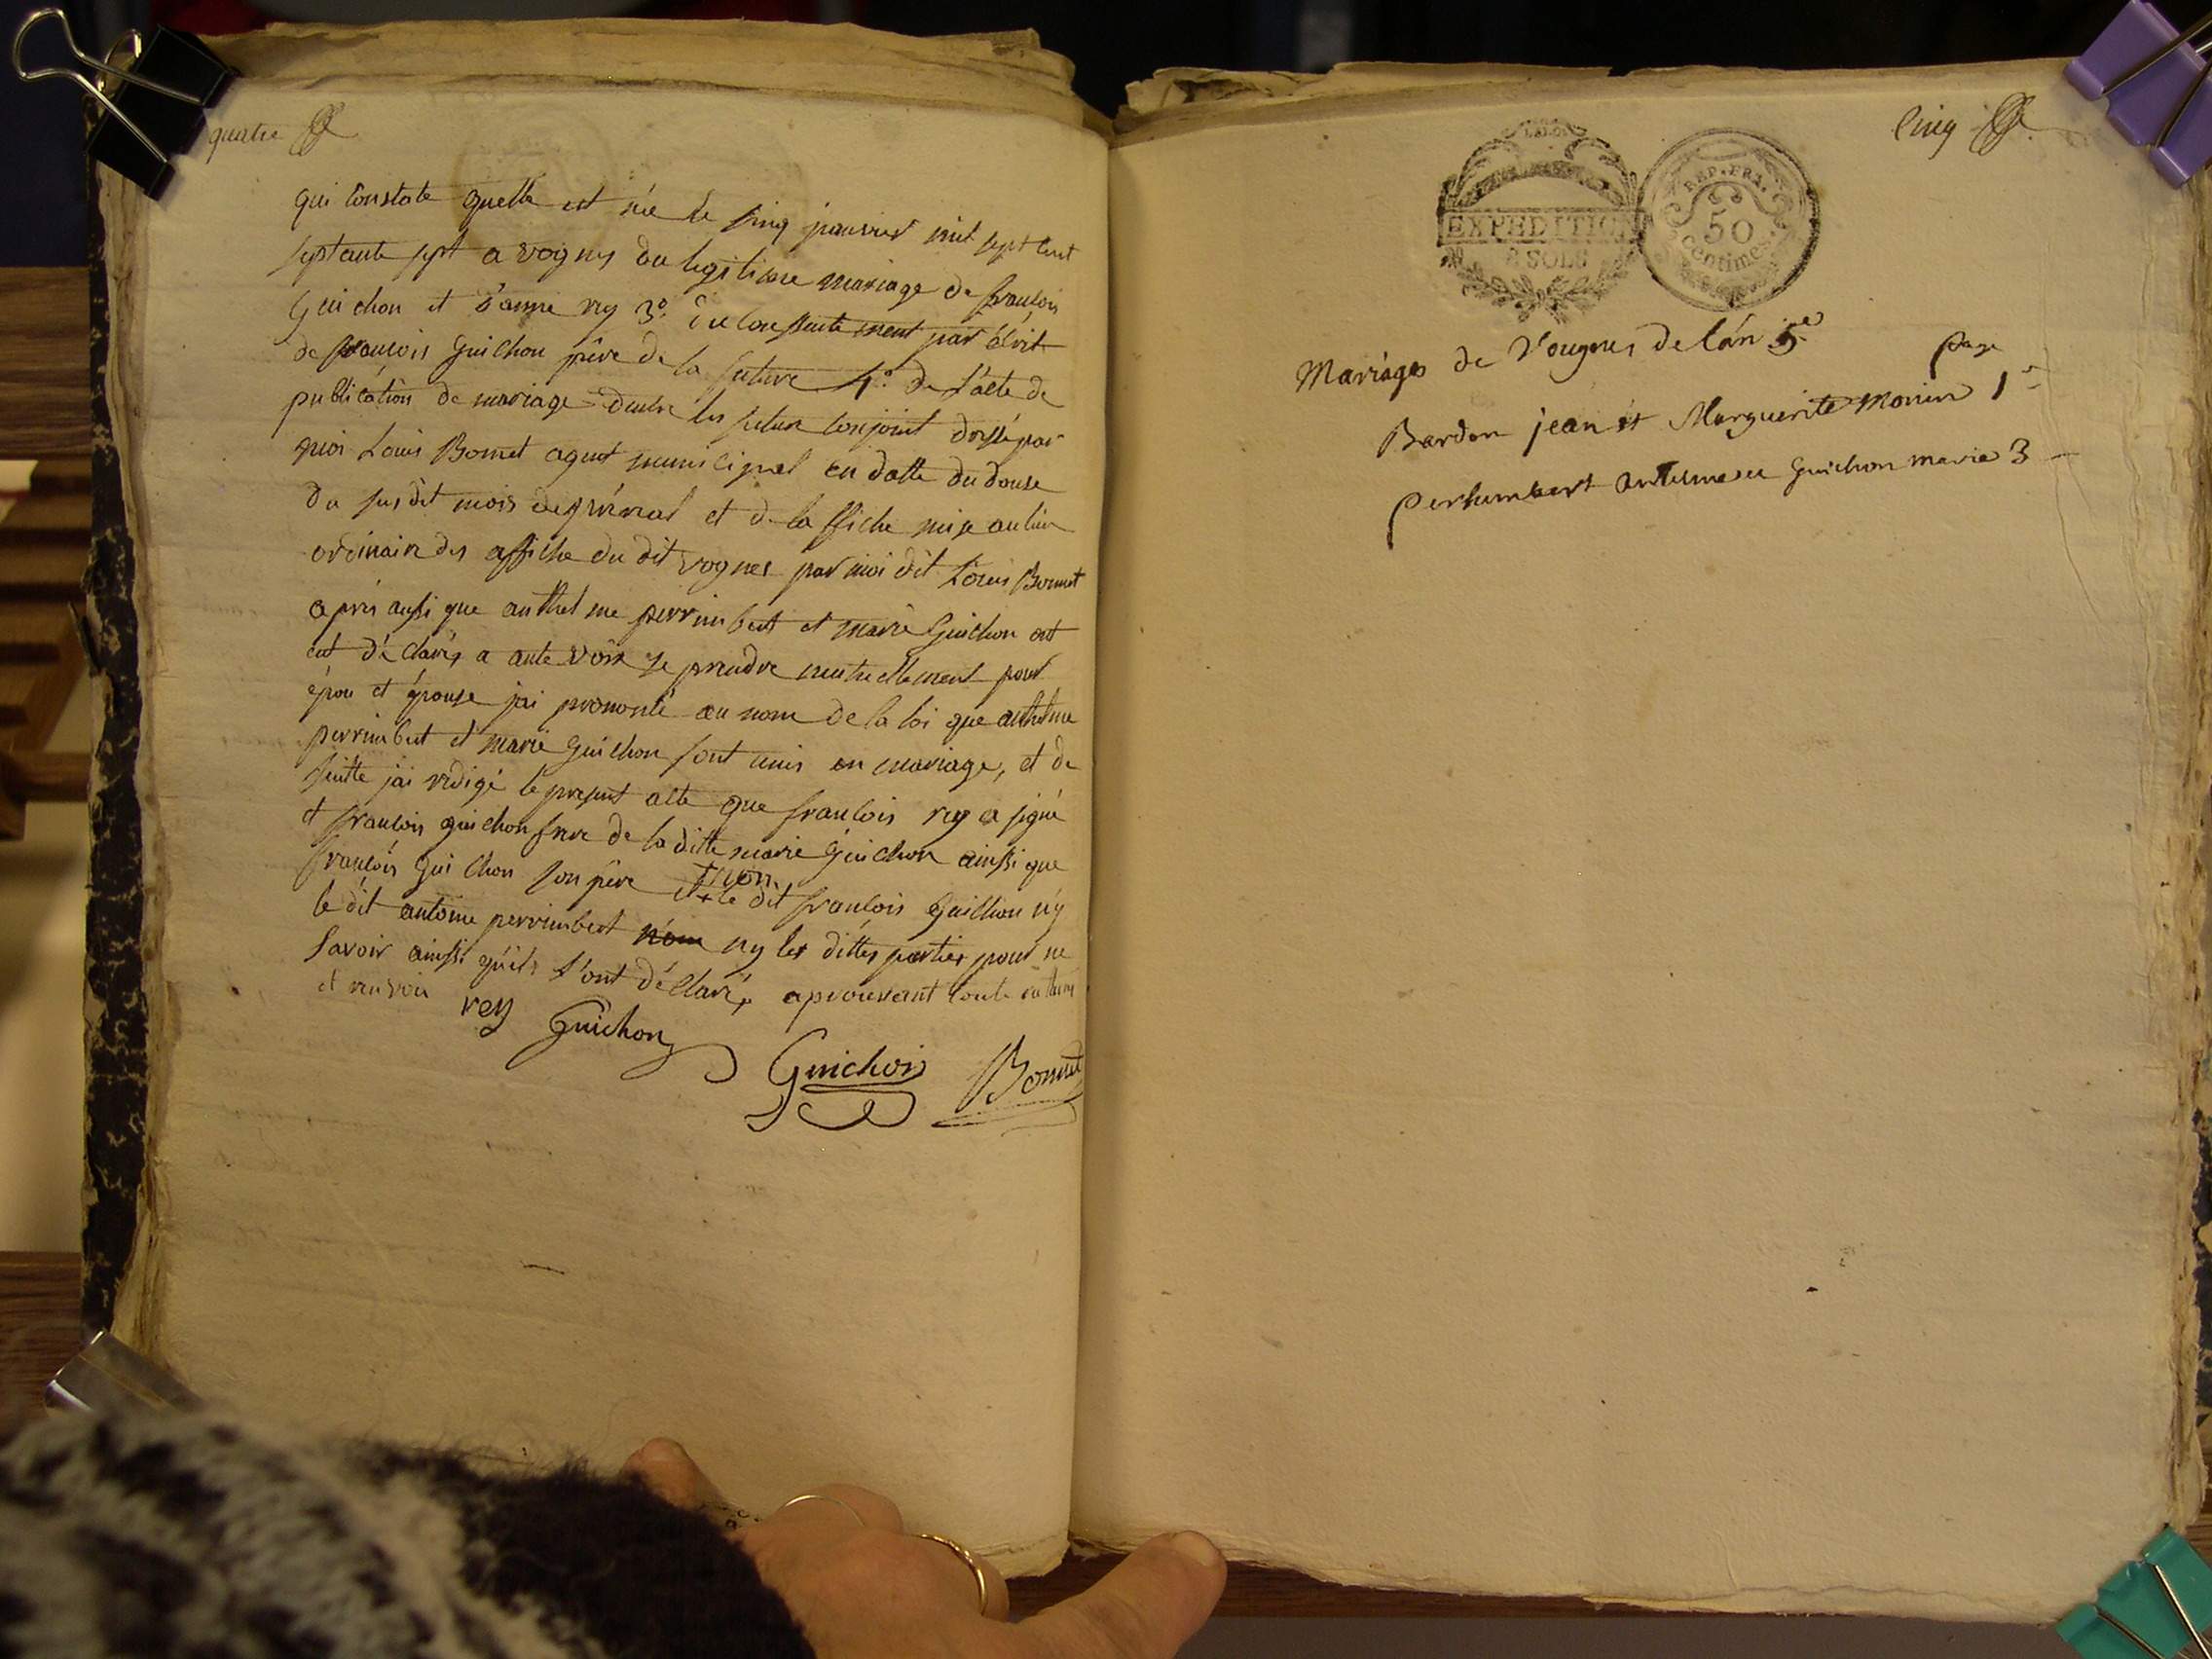 quatre
qui constate quelle est née le sinq janvier mil sept cent
septante sept a vognes du legitime mariage de francois
Guichon et d'anne rey 3° du consentement par écrit
de francois Guichon père de la future 4° de l'acte de
publication de mariage dentre les futur conjoint dressé par
moi Louis Bonnet agent municipal en datte du douse
du susdit mois de prérial et de laffiche mise au lieu
ordinaire des affiche du dit vognes par moi dit Louis Bonnet
apres aussi que anthelme perrimbert et marie Guichon ont
eut déclarés a aute voix se prendre mutuellement pour
épou et épouse jai prononcé au nom de la loi que anthelme
perrimbert et marie Guichon sont unis en mariage, et de
suitte j'ai redigé le present acte que francois rey a signé
et francois guichon frere de la ditte marie Guichon ainssi que
francois Guichon son père et non le dit francois Guichon ny
le dit antoine perrimbert ny les dittes parties pour ne
savoir ainssi qu'ils l'ont déclarés aprouvant toute rature
et renvoie
rey Guichon
Guichon Bonnet
Cinq
EXPEDITION
2 SOLS
REP. FRA.
50
centimes
Mariages de Vougnes de lán 5e
page
Bardon jean et Marguerite Monin 1
perhimbert antelme et Guichon marie 3